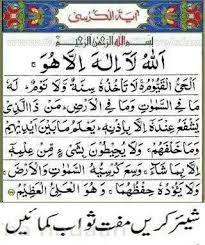 آیة الکرسی
بسم الله الرحمن الرحیم
اَللهُ لَا اِلٰهَ اِلَّا هُوَ ۚ
اَلْحَیُّ الْقَیُّوْمُ ۚ لَا تَاْخُذُهٗ سِنَةٌ وَّلَا نَوْمٌ ؕ لَهٗ
مَا فِی السَّمٰوٰتِ وَمَا فِی الْاَرْضِ ؕ مَنْ ذَا الَّذِیْ
یَشْفَعُ عِنْدَهٗ اِلَّا بِاِذْنِهٖ ؕ یَعْلَمُ مَا بَیْنَ اَیْدِیْهِمْ
وَمَا خَلْفَهُمْ ۚ وَلَا یُحِیْطُوْنَ بِشَیْءٍ مِّنْ عِلْمِهٖٓ
اِلَّا بِمَا شَآءَ ۚ وَسِعَ كُرْسِیُّهُ السَّمٰوٰتِ وَالْاَرْضَ ۚ
وَلَا یَـُٔوْدُهٗ حِفْظُهُمَا ۚ وَهُوَ الْعَلِیُّ الْعَظِیْمُ
شیئر کریں مفت ثواب کمائیں